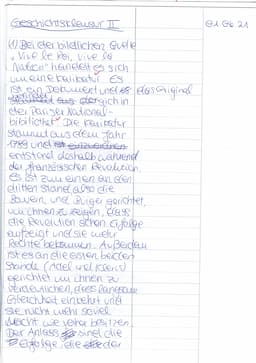 Geschichtsklausur II
01.06.21
(1) Bei der bildlichen Quelle
„Vive le Roi, vive la
Nation" handelt es sich
um eine Karikatur. Es
ist ein Dokument und das Original
sich in
der Pariser National-
bibliothek. Die Karikatur
stammt aus dem Jahr
1789 und ist
entstand deshalb während
der französischen Revolution.
Es ist zum einen an den
dritten Stand, also die
Bauern und Bürger gerichtet,
um ihnen zu zeigen, dass
die Revolution schon Erfolge
aufzeigt und sie mehr
Rechte bekommen. Außerdem
ist es an die ersten beiden
Stände (Adel und Klerus)
gerichtet um ihnen zu
verdeutlichen, dass langsam
Gleichheit einkehrt und
sie nicht mehr soviel
Macht wie vorher besitzen.
Der Anlass sind die
Erfolge, die der